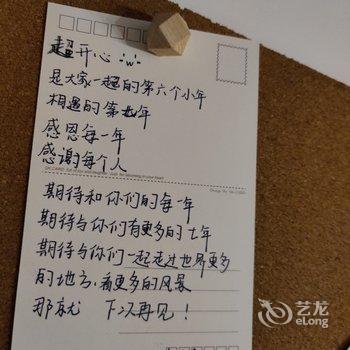 超开心 ·w·
是大家一起的第六个小年
相遇的第七年
感恩每一年
感谢每个人
期待和你们的每一年
期待与你们有更多的七年
期待与你们一起走过世界更多
的地方,看更多的风景
那就 下次再见!
艺龙
eLong